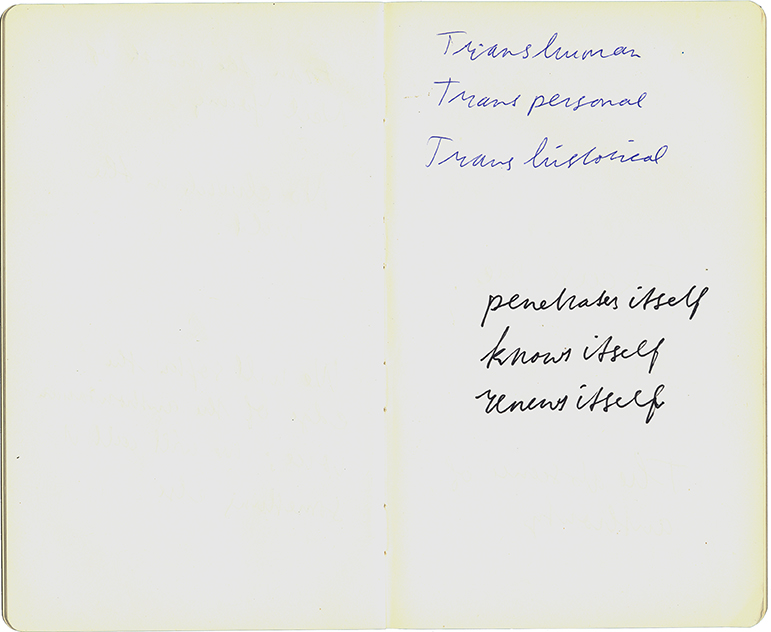 Transhuman
Trans personal
Trans historical
penetrates itself
knows itself
renews itself